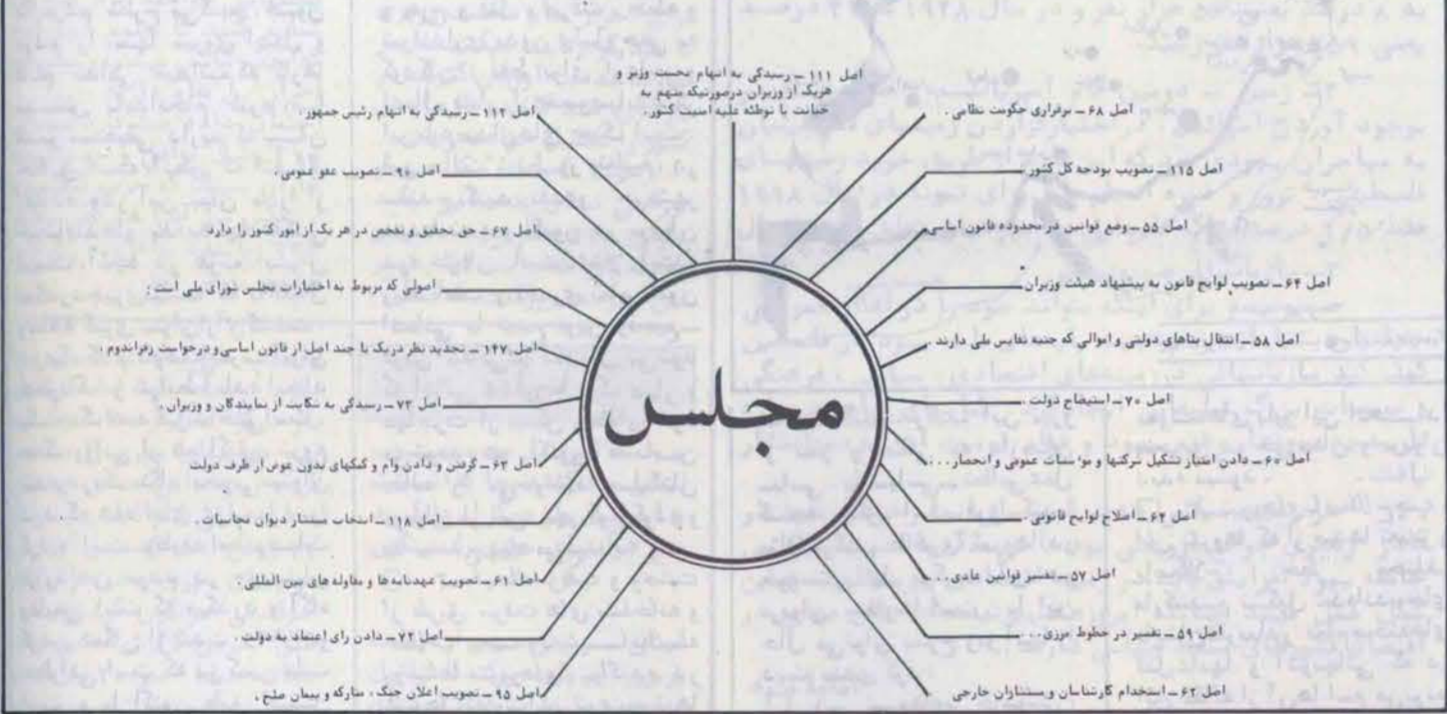 اصل ۱۱۱ – رسیدگی به اتهام نخست وزیر و
هریک از وزیران درصورتیکه متهم به
خیانت یا توطئه علیه امنیت کشور.
اصل ۶۸ – برقراری حکومت نظامی.
اصل ۱۱۵ – تصویب بودجه کل کشور
اصل ۵۵ – وضع قوانین در محدوده قانون اساسی
اصل ۶۴ – تصویب لوایح قانون به پیشنهاد هیئت وزیران
اصل ۵۸ – انتقال بناهای دولتی و اموالی که جنبه نفایس ملی دارند.
اصل ۷۰ – استیضاح دولت.
اصل ۶۰ – دادن امتیاز تشکیل شرکتها و موسسات عمومی و انحصار...
اصل ۶۴ – اصلاح لوایح قانونی.
اصل ۵۷ – تفسیر قوانین عادی...
اصل ۵۹ – تغییر در خطوط مرزی...
اصل ۶۲ – استخدام کارشناسان و مستشاران خارجی
اصل ۱۱۲ – رسیدگی به اتهام رئیس جمهور.
اصل ۹۰ – تصویب عفو عمومی.
اصل ۶۷ – حق تحقیق و تفحص در هر یک از امور کشور را دارد
اصولی که مربوط به اختیارات مجلس شورای ملی است:
اصل ۱۴۷ – تجدید نظر دریک یا چند اصل از قانون اساسی و درخواست رفراندوم.
اصل ۷۳ – رسیدگی به شکایت از نمایندگان و وزیران.
اصل ۶۳ – گرفتن و دادن وام و کمکهای بدون عوض از طرف دولت
اصل ۱۱۸ – انتخاب مستشار دیوان محاسبات.
اصل ۶۱ – تصویب عهدنامه ها و مقاوله های بین المللی.
اصل ۷۲ – دادن رای اعتماد به دولت.
اصل ۹۵ – تصویب اعلان جنگ، متارکه و پیمان صلح.
مجلس